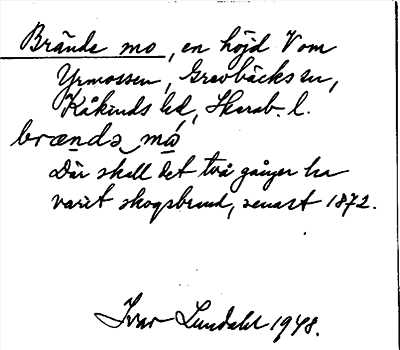 Brände mo, en höjd V om
Yrmossen, Grevbäcks sn,
Kåkinds hd, Skarab. l.
brændə mo
Där skall det två gånger ha
varit skogsbrand, senast 1872.
Ivar Lundahl 1948.